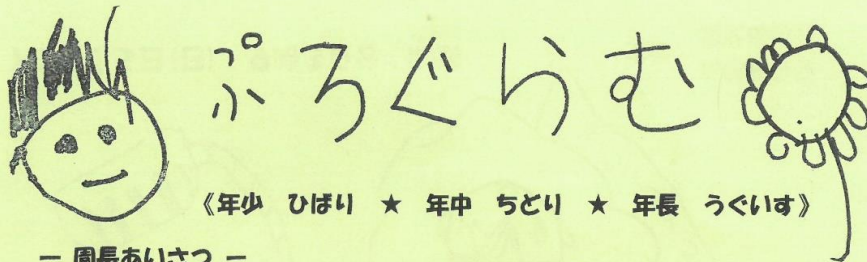 ぷろぐらむ
《年少 ひばり ★ 年中 ちどり ★ 年長 うぐいす》
－ 園長あいさつ －